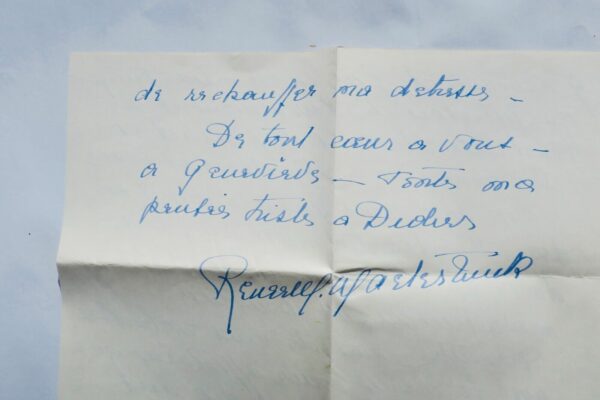 de rechauffer ma detresse –
De tout cœur a vous –
a Genevieve – toutes ma
pensées tristes a Didier
Renée Maeterlinck